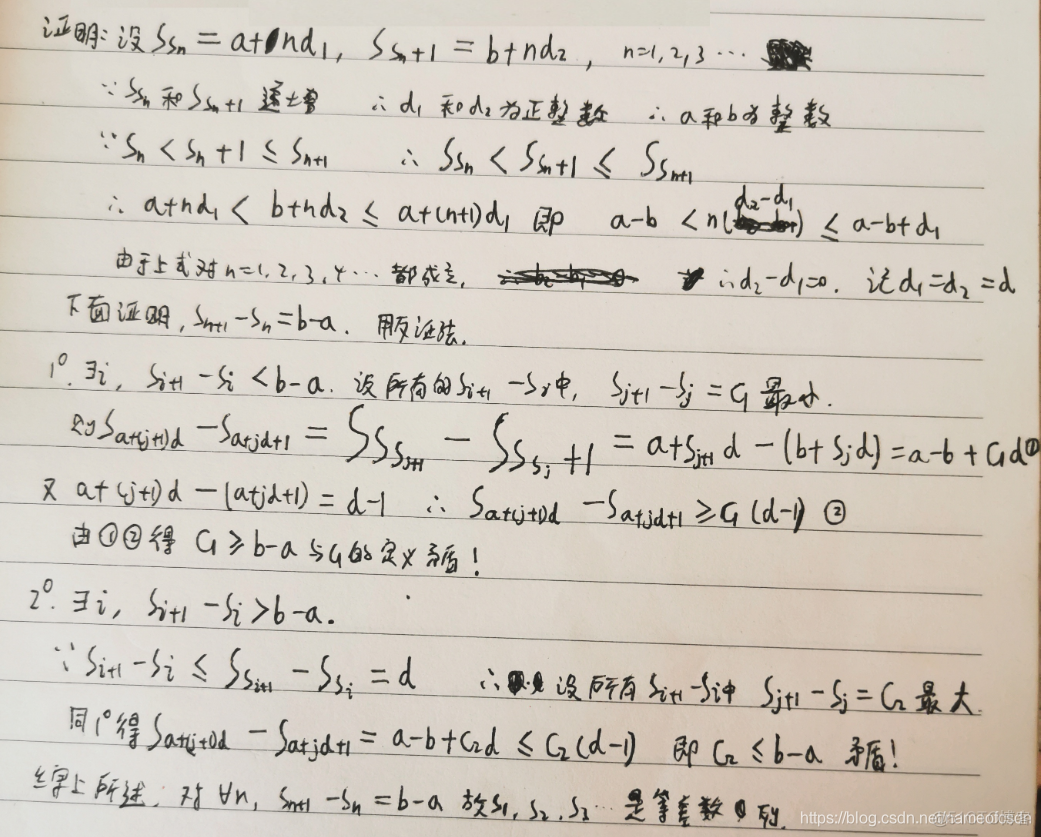 证明: 设 S_{S_n} = a+nd₁, S_{S_n+1} = b+nd₂, n=1,2,3 …
∵ S_{S_n} 和 S_{S_n+1} 递增 ∴ d₁ 和 d₂ 为正整数 ∴ a 和 b 为整数
∵ S_n < S_n+1 ≤ S_{n+1} ∴ S_{S_n} < S_{S_n+1} ≤ S_{S_{n+1}}
∴ a+nd₁ < b+nd₂ ≤ a+(n+1)d₁ 即 a-b < n(d₂-d₁) ≤ a-b+d₁
由于上式对 n=1,2,3,4 … 都成立, ∴ d₂-d₁=0. 记 d₁=d₂=d
下面证明, S_{n+1}-S_n=b-a. 用反证法.
1°. ∃i, S_{i+1}-S_i < b-a. 设所有的 S_{i+1}-S_i 中, S_{j+1}-S_j = C₁ 最小.
则 S_{a+(j+1)d} - S_{a+jd+1} = S_{S_{S_{j+1}}} - S_{S_{S_j}+1} = a+S_{j+1}d - (b+S_jd) = a-b+C₁d ①
又 a+(j+1)d - (a+jd+1) = d-1 ∴ S_{a+(j+1)d} - S_{a+jd+1} ≥ C₁(d-1) ②
由①②得 C₁ ≥ b-a 与 C₁ 的定义矛盾!
2°. ∃i, S_{i+1} - S_i > b-a.
∵ S_{i+1} - S_i ≤ S_{S_{i+1}} - S_{S_i} = d ∴ 设所有 S_{i+1}-S_i 中 S_{j+1}-S_j = C₂ 最大.
同1°得 S_{a+(j+1)d} - S_{a+jd+1} = a-b+C₂d ≤ C₂(d-1) 即 C₂ ≤ b-a 矛盾!
综上所述, 对 ∀n, S_{n+1}-S_n = b-a 故 S₁, S₂, S₃ … 是等差数列.
https://blog.csdn.net/nameofcsdn